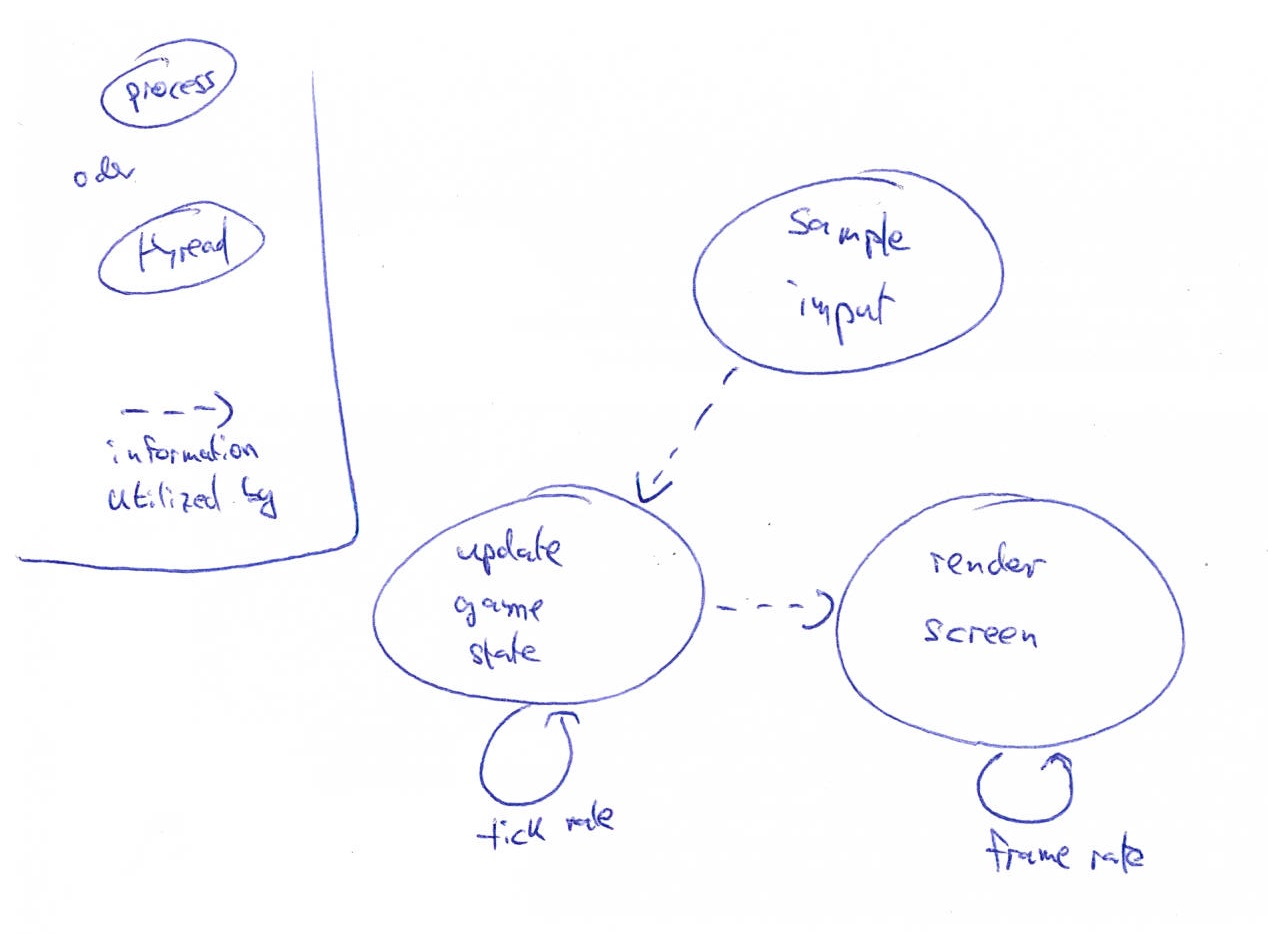 process
oder
Thread
information
utilized by
sample
input
update
game
state
render
screen
tick rate
frame rate